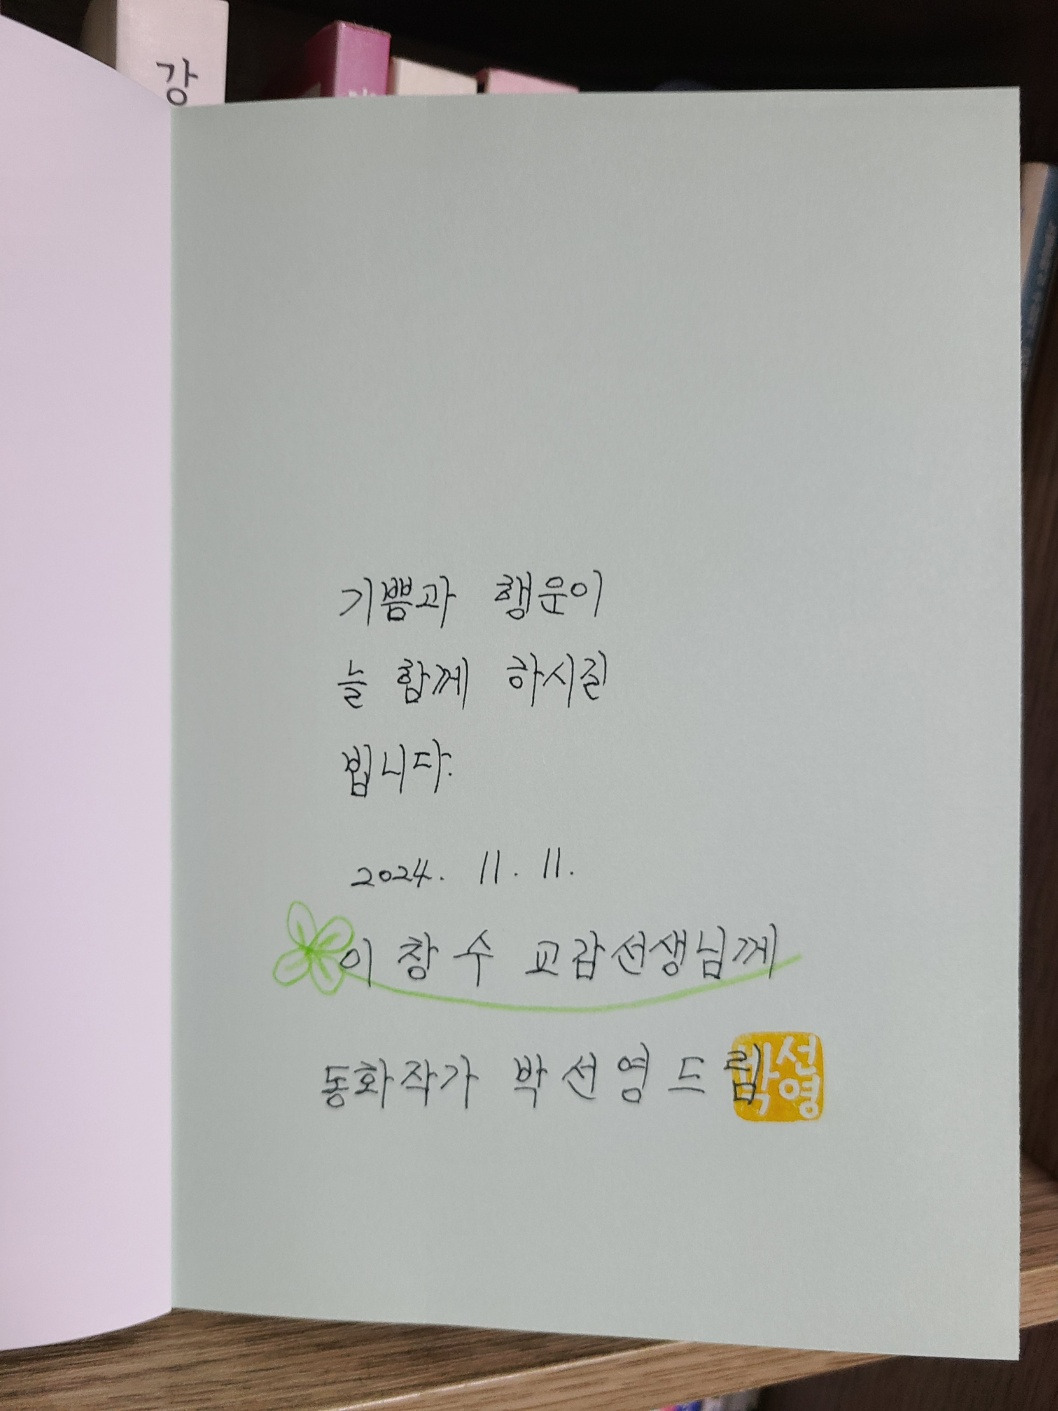 강
기쁨과 행운이
늘 함께 하시길
빕니다.
2024. 11. 11.
이창수 교감선생님께
동화작가 박선영 드림
박선영